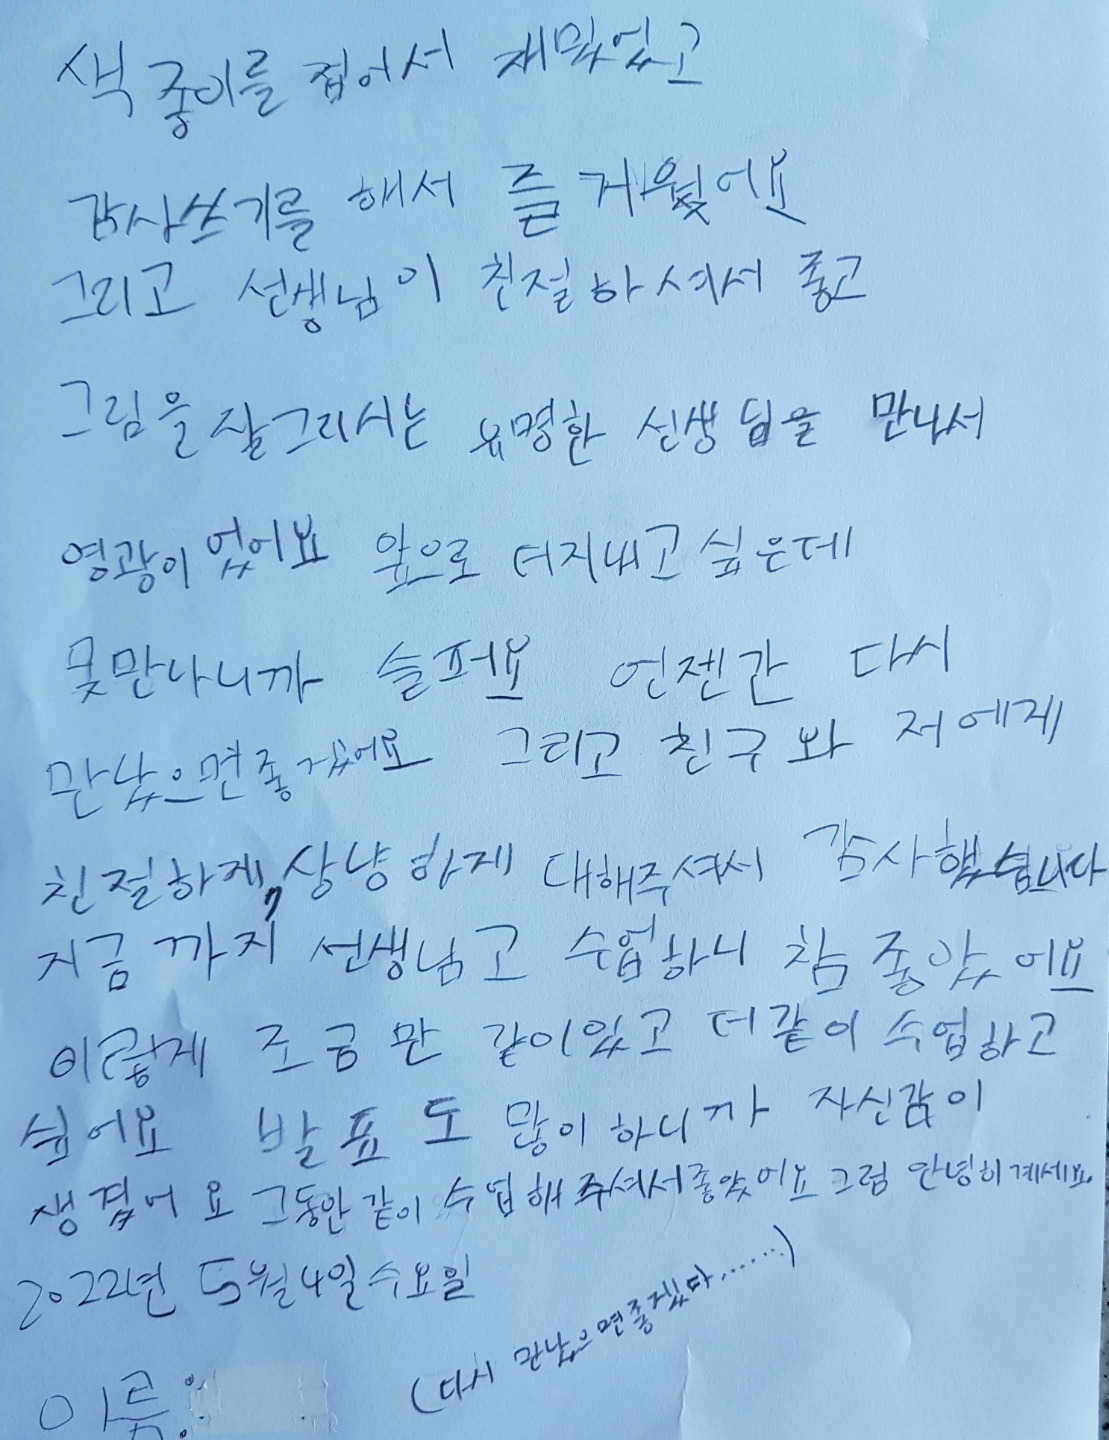 색종이를 접어서 재밌었고
감사쓰기를 해서 즐거웠어요
그리고 선생님이 친절하셔서 좋고
그림을 잘그리시는 유명한 선생님을 만나서
영광이었어요 앞으로 더지내고싶은데
못만나니까 슬퍼요 언젠간 다시
만났으면좋겠어요 그리고 친구와 저에게
친절하게, 상냥하게 대해주셔서 감사했습니다
지금까지 선생님고 수업하니 참 좋았어요
이렇게 조금만 같이있고 더같이 수업하고
싶어요 발표도 많이하니까 자신감이
생겼어요 그동안같이 수업해주셔서좋았어요 그럼 안녕히계세요.
2022년 5월4일수요일
(다시 만났으면좋겠다......)
이름: